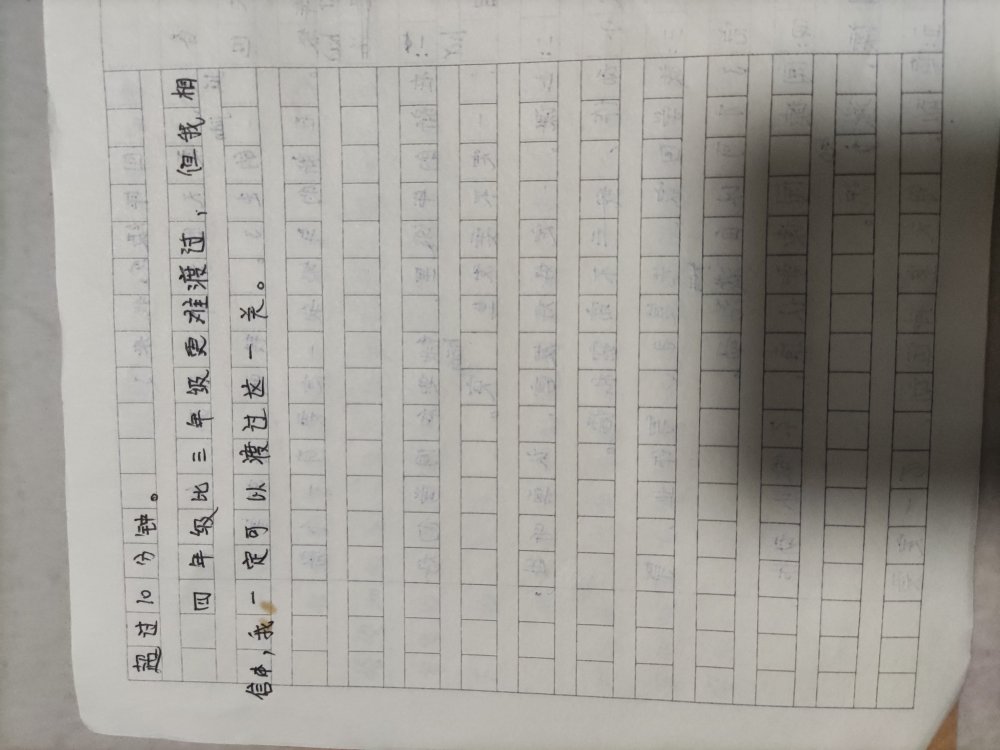 超过10分钟。
四年级比三年级更难渡过，但我相
信，我一定可以渡过这一关。